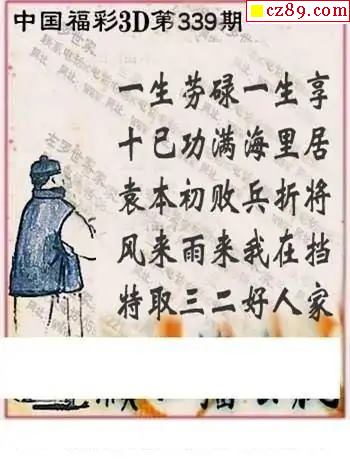 中国福彩3D第339期
cz89.com
一生劳碌一生享
十已功满海里居
袁本初败兵折将
风来雨来我在挡
特取三二好人家